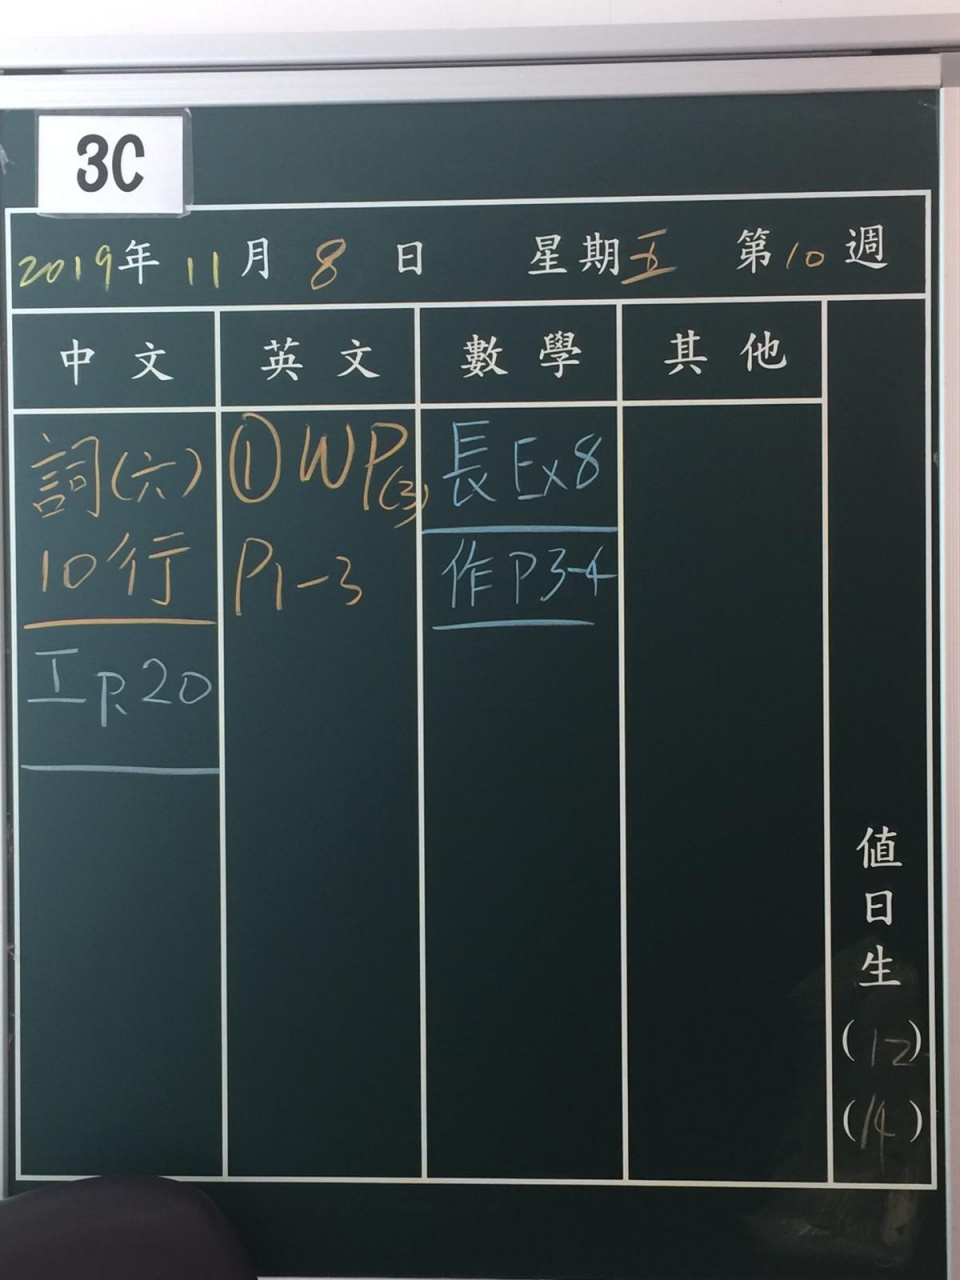 3C
2019年 11月 8日 星期五 第10週
中文 英文 數學 其他
詞(六)
10行
工P.20
①WP(3)
P1-3
長Ex8
作P3-4
值日生
(12)
(14)